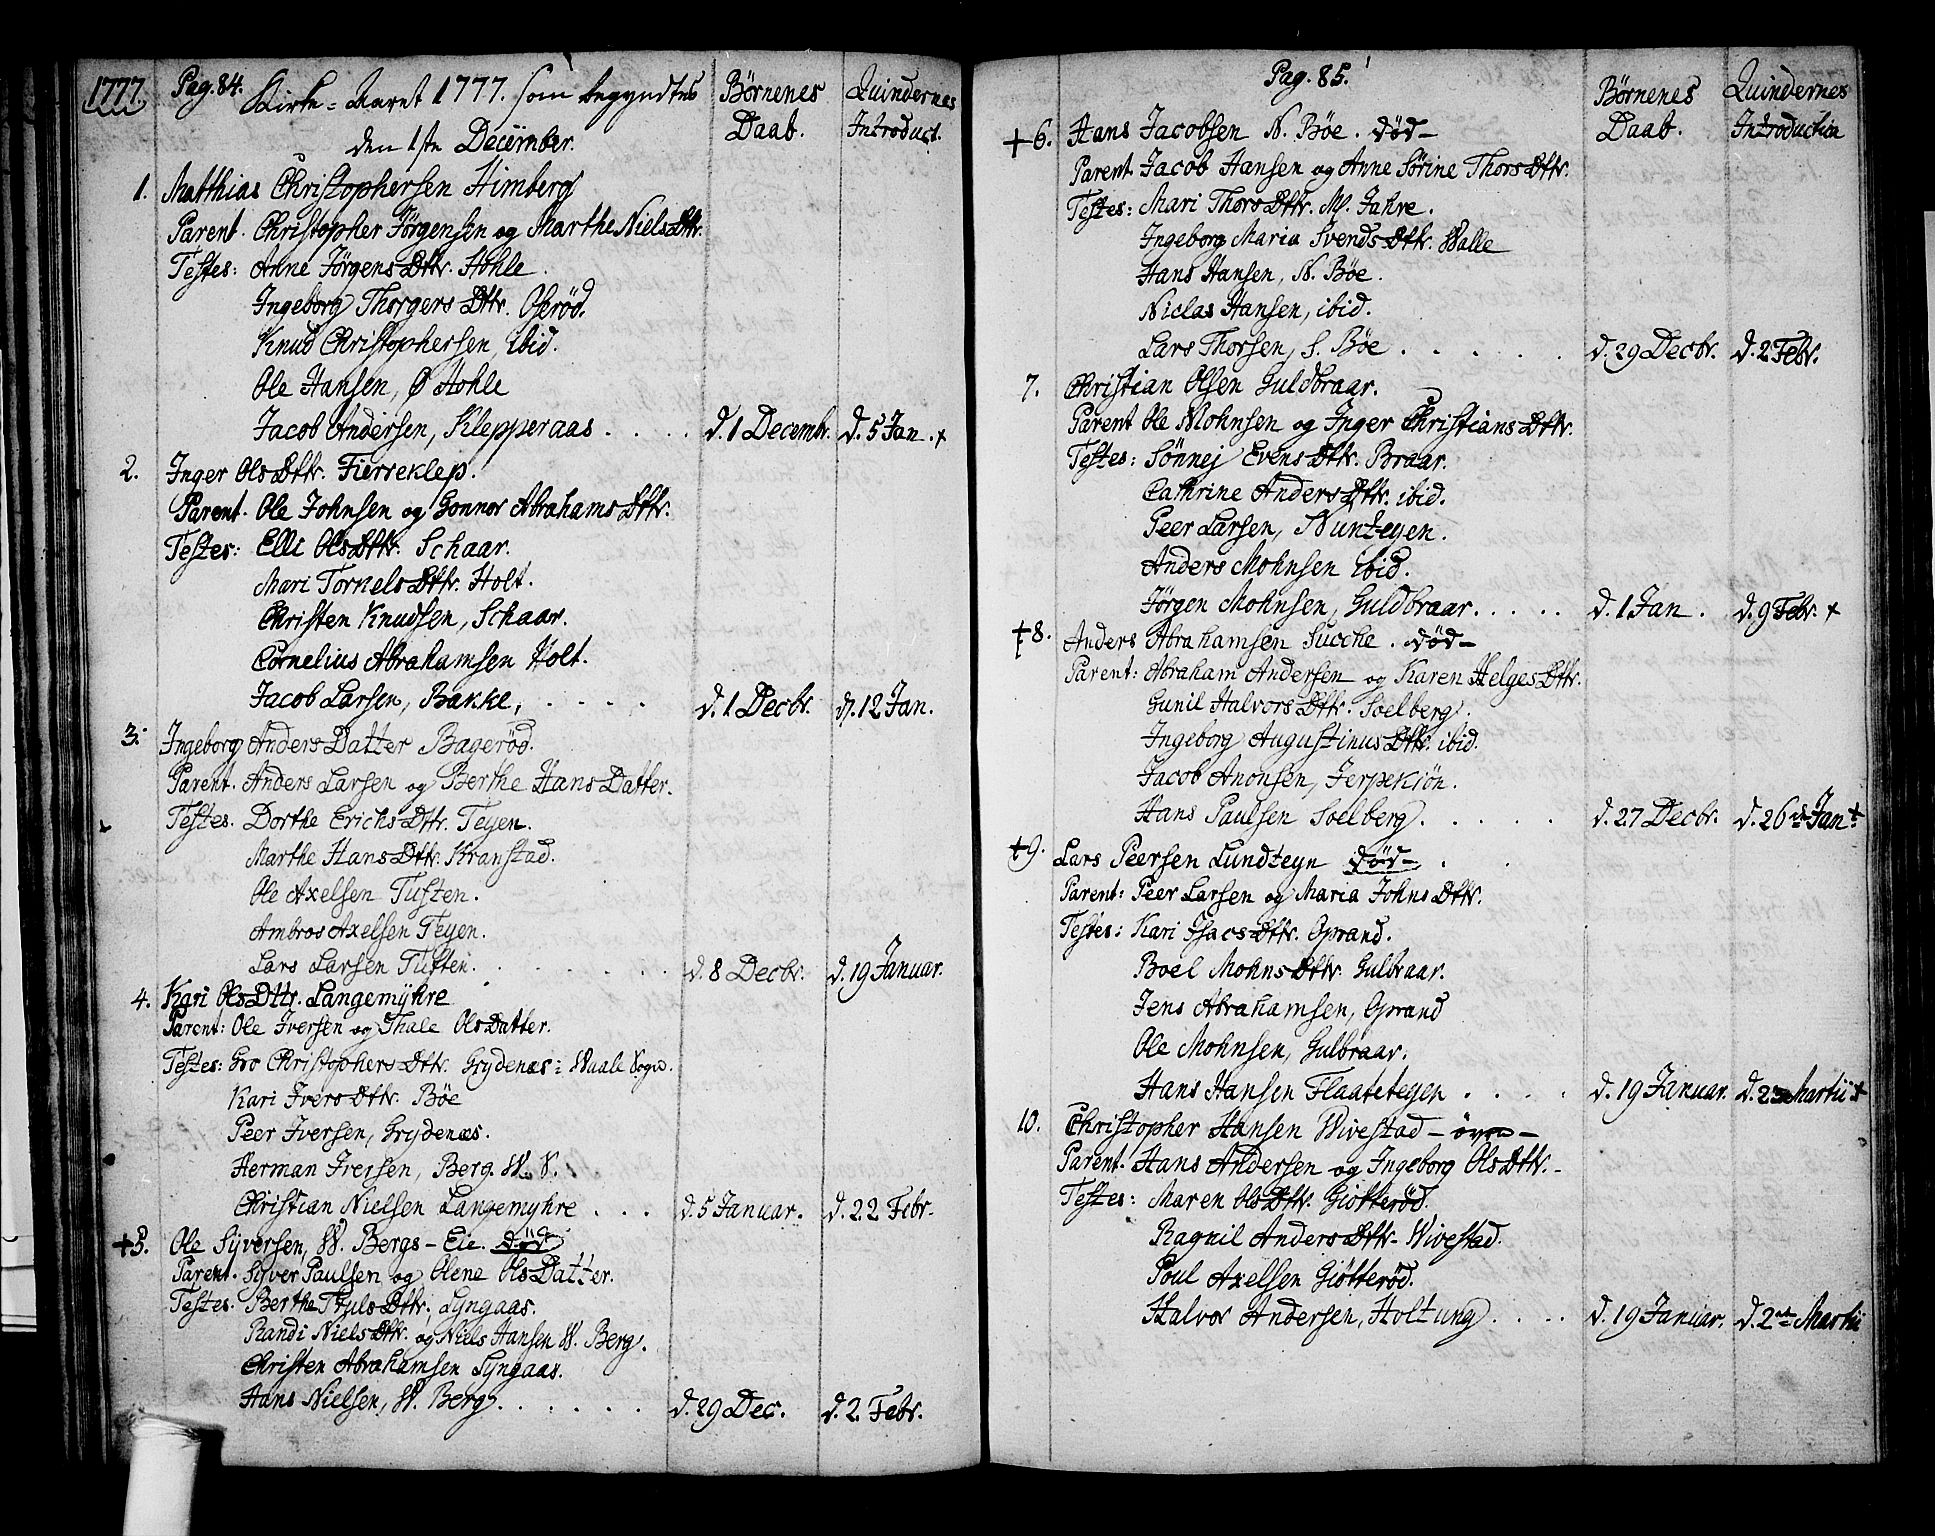 1777. Pag. 84. Kirke-Aaret 1777. som begyndtes
den 1ste December.
Børnenes Daab.
Quindernes Introduct.
1. Matthias Christophersen Himberg
Parent. Christopher Jørgensen og Marthe Niels Dttr.
Testes: Anne Jørgens Dttr. Hohle.
Ingeborg Thorgers Dttr. Oserød.
Knud Christophersen, ibid.
Ole Hansen, Ø Hohle
Jacob Andersen, Klepperaas . . . . d. 1 Decembr. d. 5 Jan. +
2. Inger Ols Dttr. Fierreklep.
Parent. Ole Johnsen og Gonnor Abrahams Dttr.
Testes: Elli Ols Dttr. Schaar.
Mari Torkels Dttr. Holt.
Christen Knudsen, Schaar.
Cornelius Abrahamsen Holt.
Jacob Larsen, Bakke, . . . . d. 1 Decbr. d. 12 Jan.
3. Ingeborg Anders Datter Bagerød.
Parent. Anders Larsen og Berthe Hans Datter.
Testes. Dorthe Erichs Dttr. Teyen.
Marthe Hans Dttr. Kranstad.
Ole Axelsen Tuften.
Ambros Axelsen Teyen.
Lars Larsen Tuften. . . . . . . d. 8 Decbr. d. 19 Januar.
4. Kari Ols Dttr. Langemyhre
Parent: Ole Iversen og Thale Ols Datter.
Testes: Gro Christophers Dttr. Grydenæs: Waale Sogn.
Kari Ivers Dttr. Bøe
Peer Iversen, Grydenæs.
Herman Iversen, Berg. W. S.
Christian Nielsen Langemyhre . . . d. 5 Januar. d. 22 Febr.
+ 5. Ole Syversen, W. Bergs-Eie. død
Parent. Syver Paulsen og Olene Ols Datter.
Testes. Berthe Truls Dttr. Lyngaas.
Randi Niels Dttr. og Niels Hansen W. Berg.
Christen Abrahamsen Lyngaas.
Hans Nielsen, W. Berg. . . . . . d. 29 Dec. d. 2. Febr.
Pag. 85.
Børnenes Daab.
Quindernes Introduction
+ 6. Hans Jacobsen N. Bøe. død-
Parent Jacob Hansen og Anne Sørine Thors Dttr.
Testes: Mari Thors Dttr. M. Jahre.
Ingeborg Maria Svends Dttr. Walle
Hans Hansen, N. Bøe.
Niclas Hansen, ibid.
Lars Thorsen, S. Bøe . . . . . d. 29 Decbr. d. 2 Febr.
7. Christian Olsen Guldbraar.
Parent Ole Mohnsen og Inger Christians Dttr.
Testes: Sønnej Evens Dttr. Braar.
Cathrine Anders Dttr. ibid.
Peer Larsen, Nuntegen.
Anders Mohnsen ibid.
Jørgen Mohnsen, Guldbraar. . . . . d. 1 Jan. d. 9 Febr. +
+ 8. Anders Abrahamsen Sucche. død-
Parent: Abraham Andersen og Karen Helges Dttr.
Gunil Halvors Dttr. Soelberg.
Ingeborg Augustinus Dttr. ibid.
Jacob Anonsen, Jerpekiøn.
Hans Paulsen Soelberg. . . . . . d. 27 Decbr. d. 26de Jan. +
+ 9. Lars Peersen Lundteyn død- .
Parent: Peer Larsen og Maria Johns Dttr.
Testes: Kari Isacs Dttr. Oprand.
Boel Mohns Dttr. Gulbraar.
Jens Abrahamsen, Oprand
Ole Mohnsen, Gulbraar.
Hans Hansen Flaateteyen . . . . d. 19 Januar. d. 23 Martii +
10. Christopher Hansen Wivestad - øvre -
Parent. Hans Andersen og Ingeborg Ols Dttr. -
Testes: Maren Ols Dttr. Giøtterød.
Ragnil Anders Dttr. Wivestad.
Poul Axelsen Giøtterød.
Halvor Andersen, Holtung. . . . . d. 19 Januar. d. 2den Martii